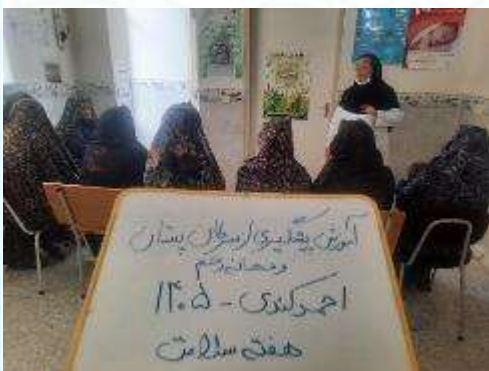 آموزش پیشگیری از سرطان پستان
و دهانه رحم
احمدکندی - ۱۴۰۵
هفته سلامت